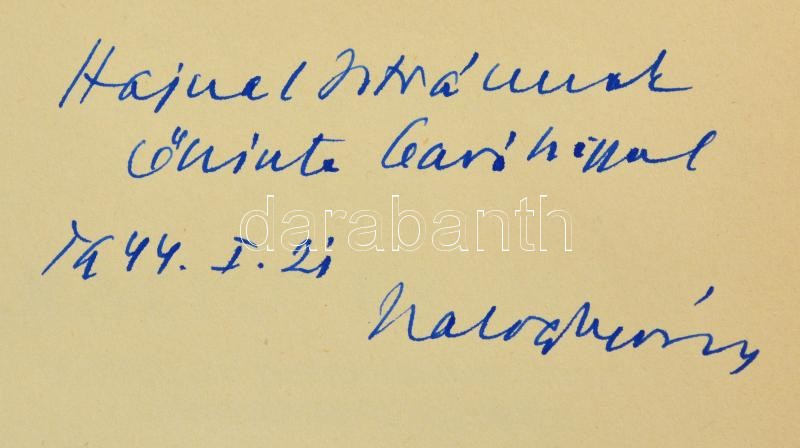 Hajnal Istvánnak
őszinte barátsággal
darabanth
1944. I. 21